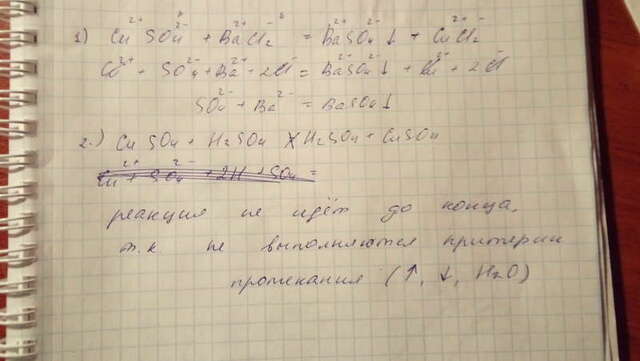 1) Cu²⁺SO₄²⁻ + BaCl₂ = BaSO₄↓ + CuCl₂
Cu²⁺ + SO₄²⁻ + Ba²⁺ + 2Cl⁻ = BaSO₄↓ + Cu²⁺ + 2Cl⁻
SO₄²⁻ + Ba²⁺ = BaSO₄↓
2.) CuSO₄ + H₂SO₄ X H₂SO₄ + CuSO₄
реакция не идёт до конца,
т.к не выполняются критерии
протекания (↑, ↓, H₂O)